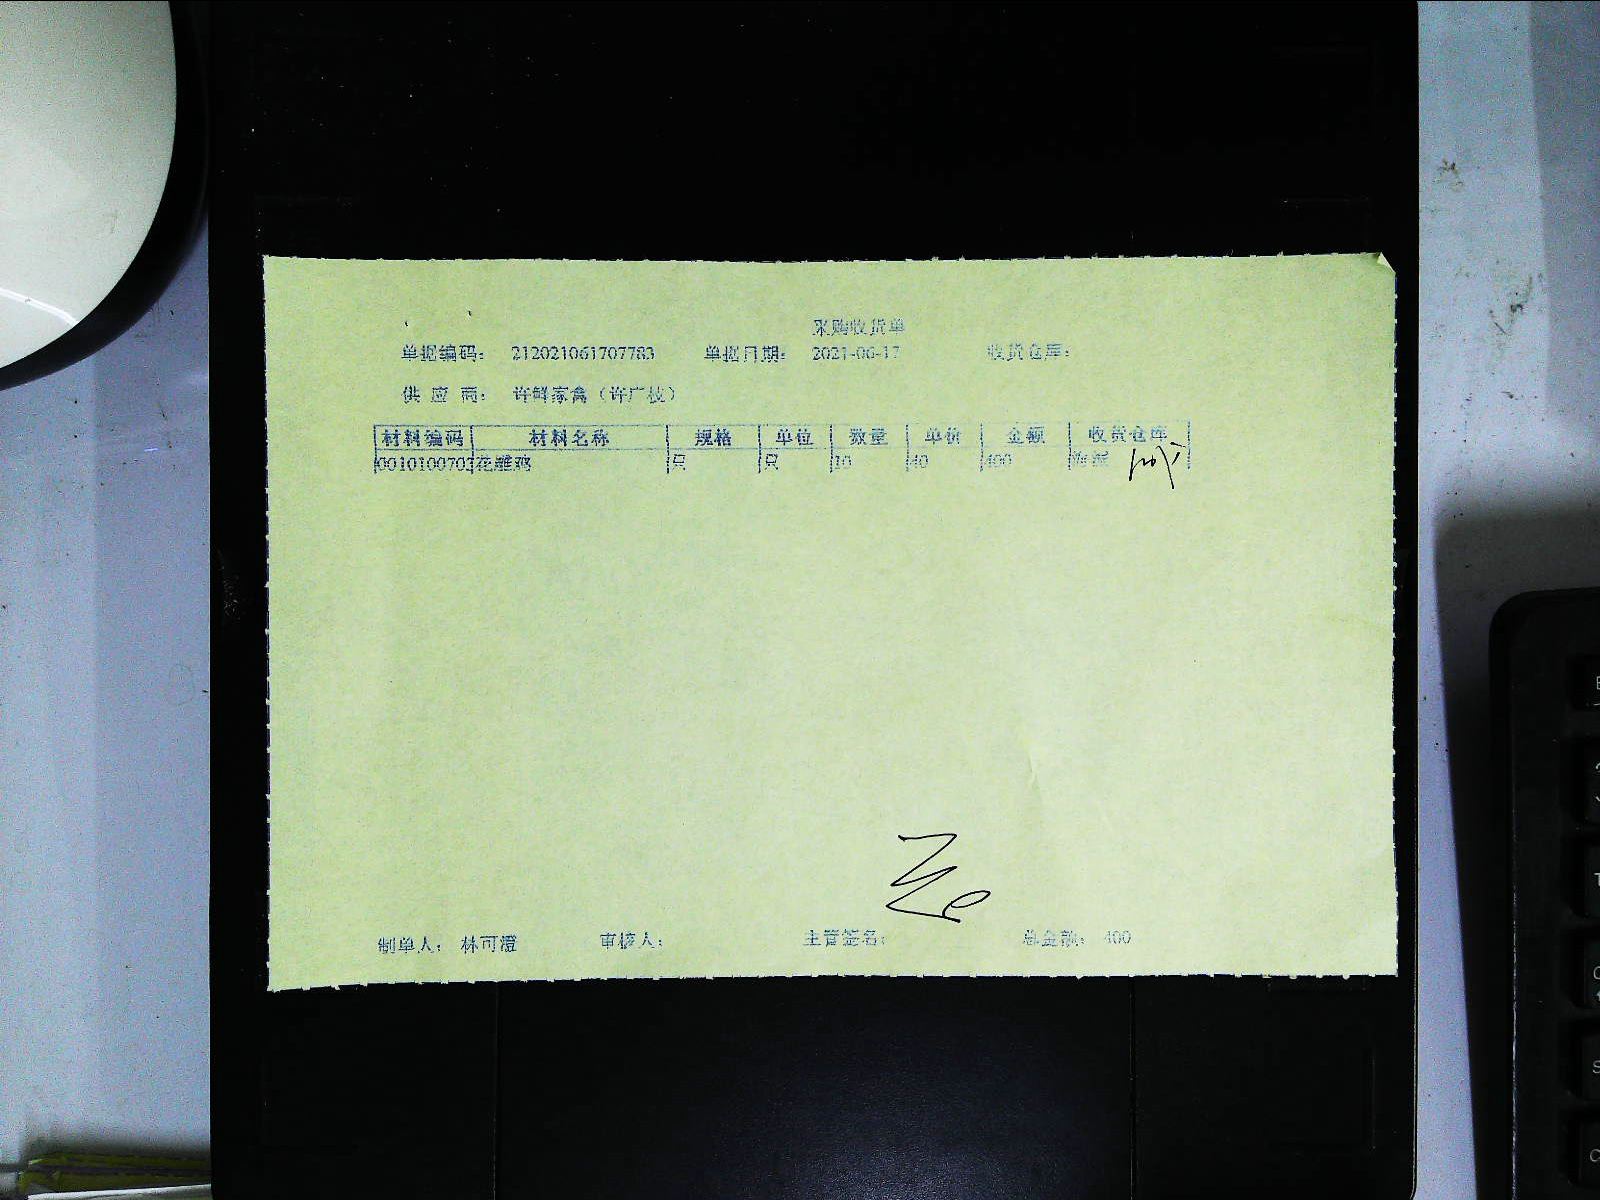 采购收货单
单据编码： 212021061707783 单据日期： 2021-06-17 收货仓库：
供 应 商： 许鲜家禽（许广枝）
材料编码 材料名称 规格 单位 数量 单价 金额 收货仓库
0010100702 花雕鸡 只 只 10 40 400
制单人： 林可澄 审核人： 主管签名： 总金额： 400